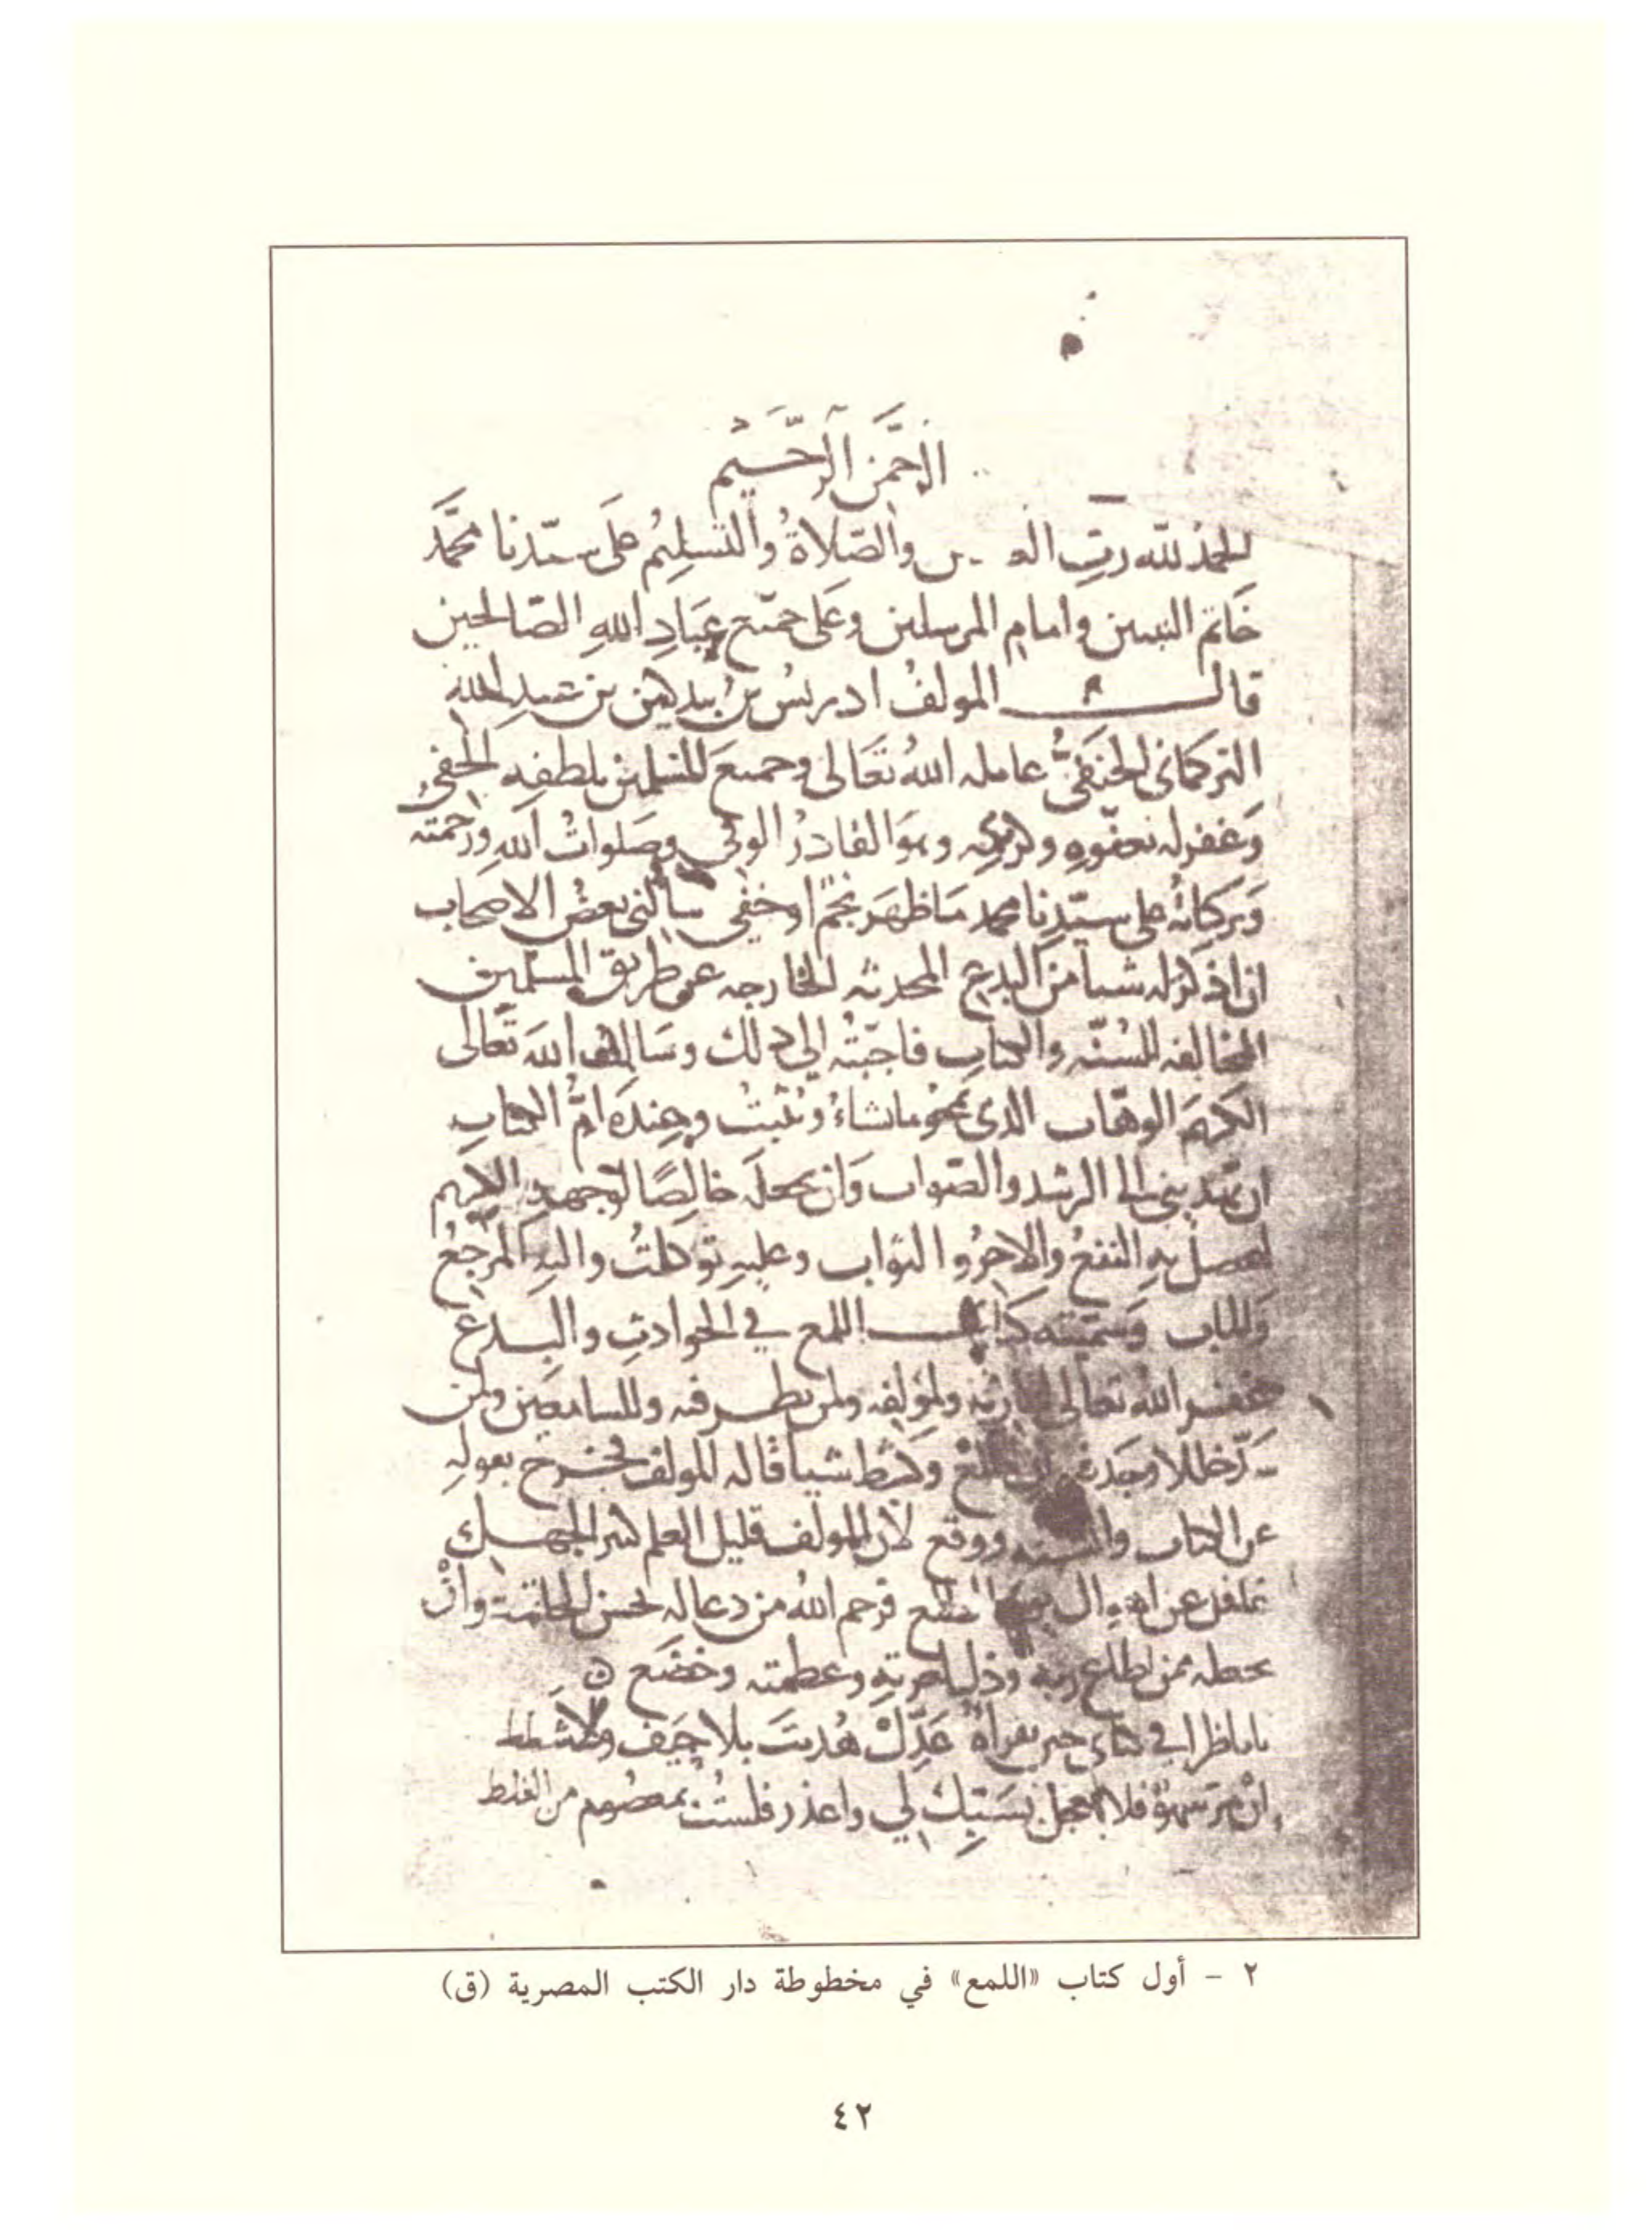 الرحمن الرحيم
الحمد لله رب والصلاة والتسليم على سيدنا محمد
خاتم النبيين وامام المرسلين وعلى جميع عباد الله الصالحين
قال المولف ادريس بن بيدكين بن عبد الله
التركماني الحنفي عامله الله تعالى وجميع المسلمين بلطفه الخفي
وغفر له بعفوه وكرمه وهو القادر الوفي وصلوات الله ورحمته
وبركاته على سيدنا محمد ما ظهر نجم او خفي سالني بعض الاصحاب
ان اذكر له شيا من البدع المحدثه الخارجه عن طريق المسلمين
المخالفه للسنه والكتاب فاجبته الى ذلك وسالت الله تعالى
الكريم الوهاب الذي يمحو ما يشاء ويثبت وعنده ام الكتاب
ان يهديني الى الرشد والصواب وان يجعله خالصا لوجهه الكريم
ليحصل به النفع والاجر والثواب وعليه توكلت واليه المرجع
والماب وسميته كتاب اللمع في الحوادث والبدع
غفر الله تعالى لقارئه ولمولفه ولمن نظر فيه وللسامعين ولمن
خللا وجده شيا قاله المولف فخرج بقوله
عن الكتاب والسنه ووقع لان المولف قليل العلم كثير الجهل
غافل عن فرحم الله من دعا له بحسن الخاتمة وان
يجعله ممن اطاع ربه وذل وعظمته وخضع
يا ناظرا في كتابي حين يقراه عدل هديت بلا حيف ولا شطط
ان مر سهو فلا تعجل بسبك لي واعذر فلست بمعصوم من الغلط
٢ - أول كتاب «اللمع» في مخطوطة دار الكتب المصرية (ق)
٤٢